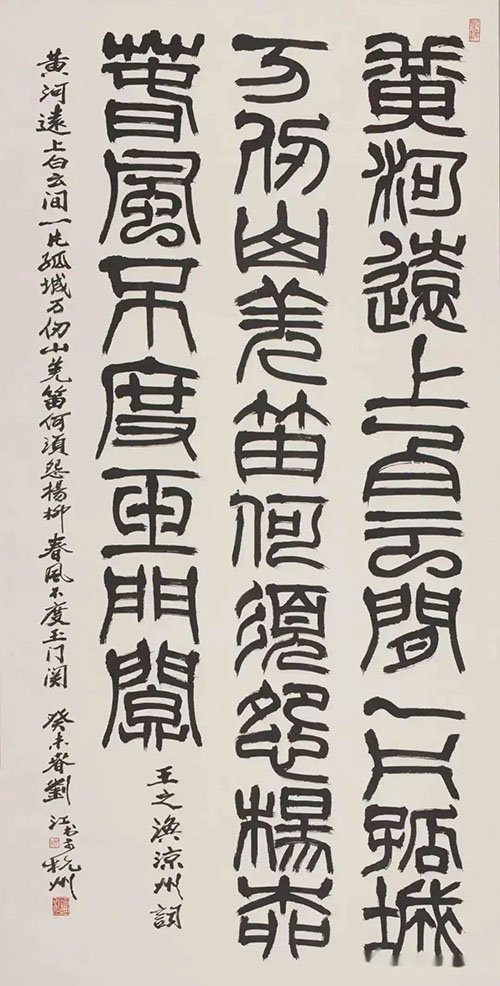 黄河遠上白云間一片孤城
万仞山羌笛何須怨楊柳
春風不度玉門關
王之渙涼州詞
黄河遠上白云间一片孤城万仞山羌笛何須怨楊柳春風不度玉门関 癸未春劉江书于杭州